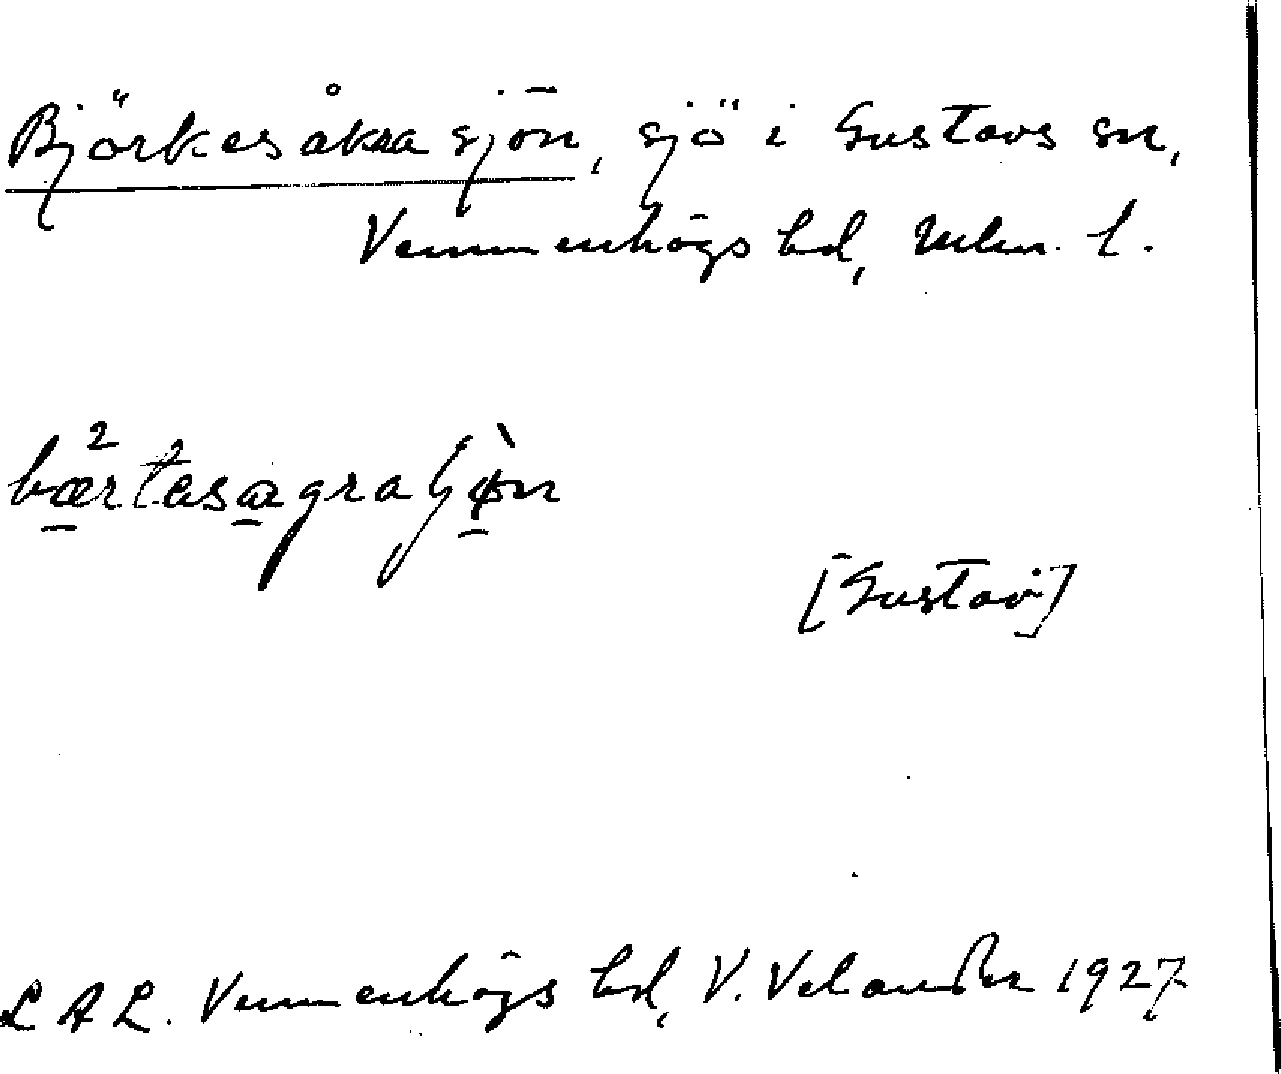 Björkesåkrasjön, sjö i Gustavs sn,
Vemmenhögs hd, Mlm. l.
[Gustav]
L A L. Vemmenhögs hd, V. Velander 1927